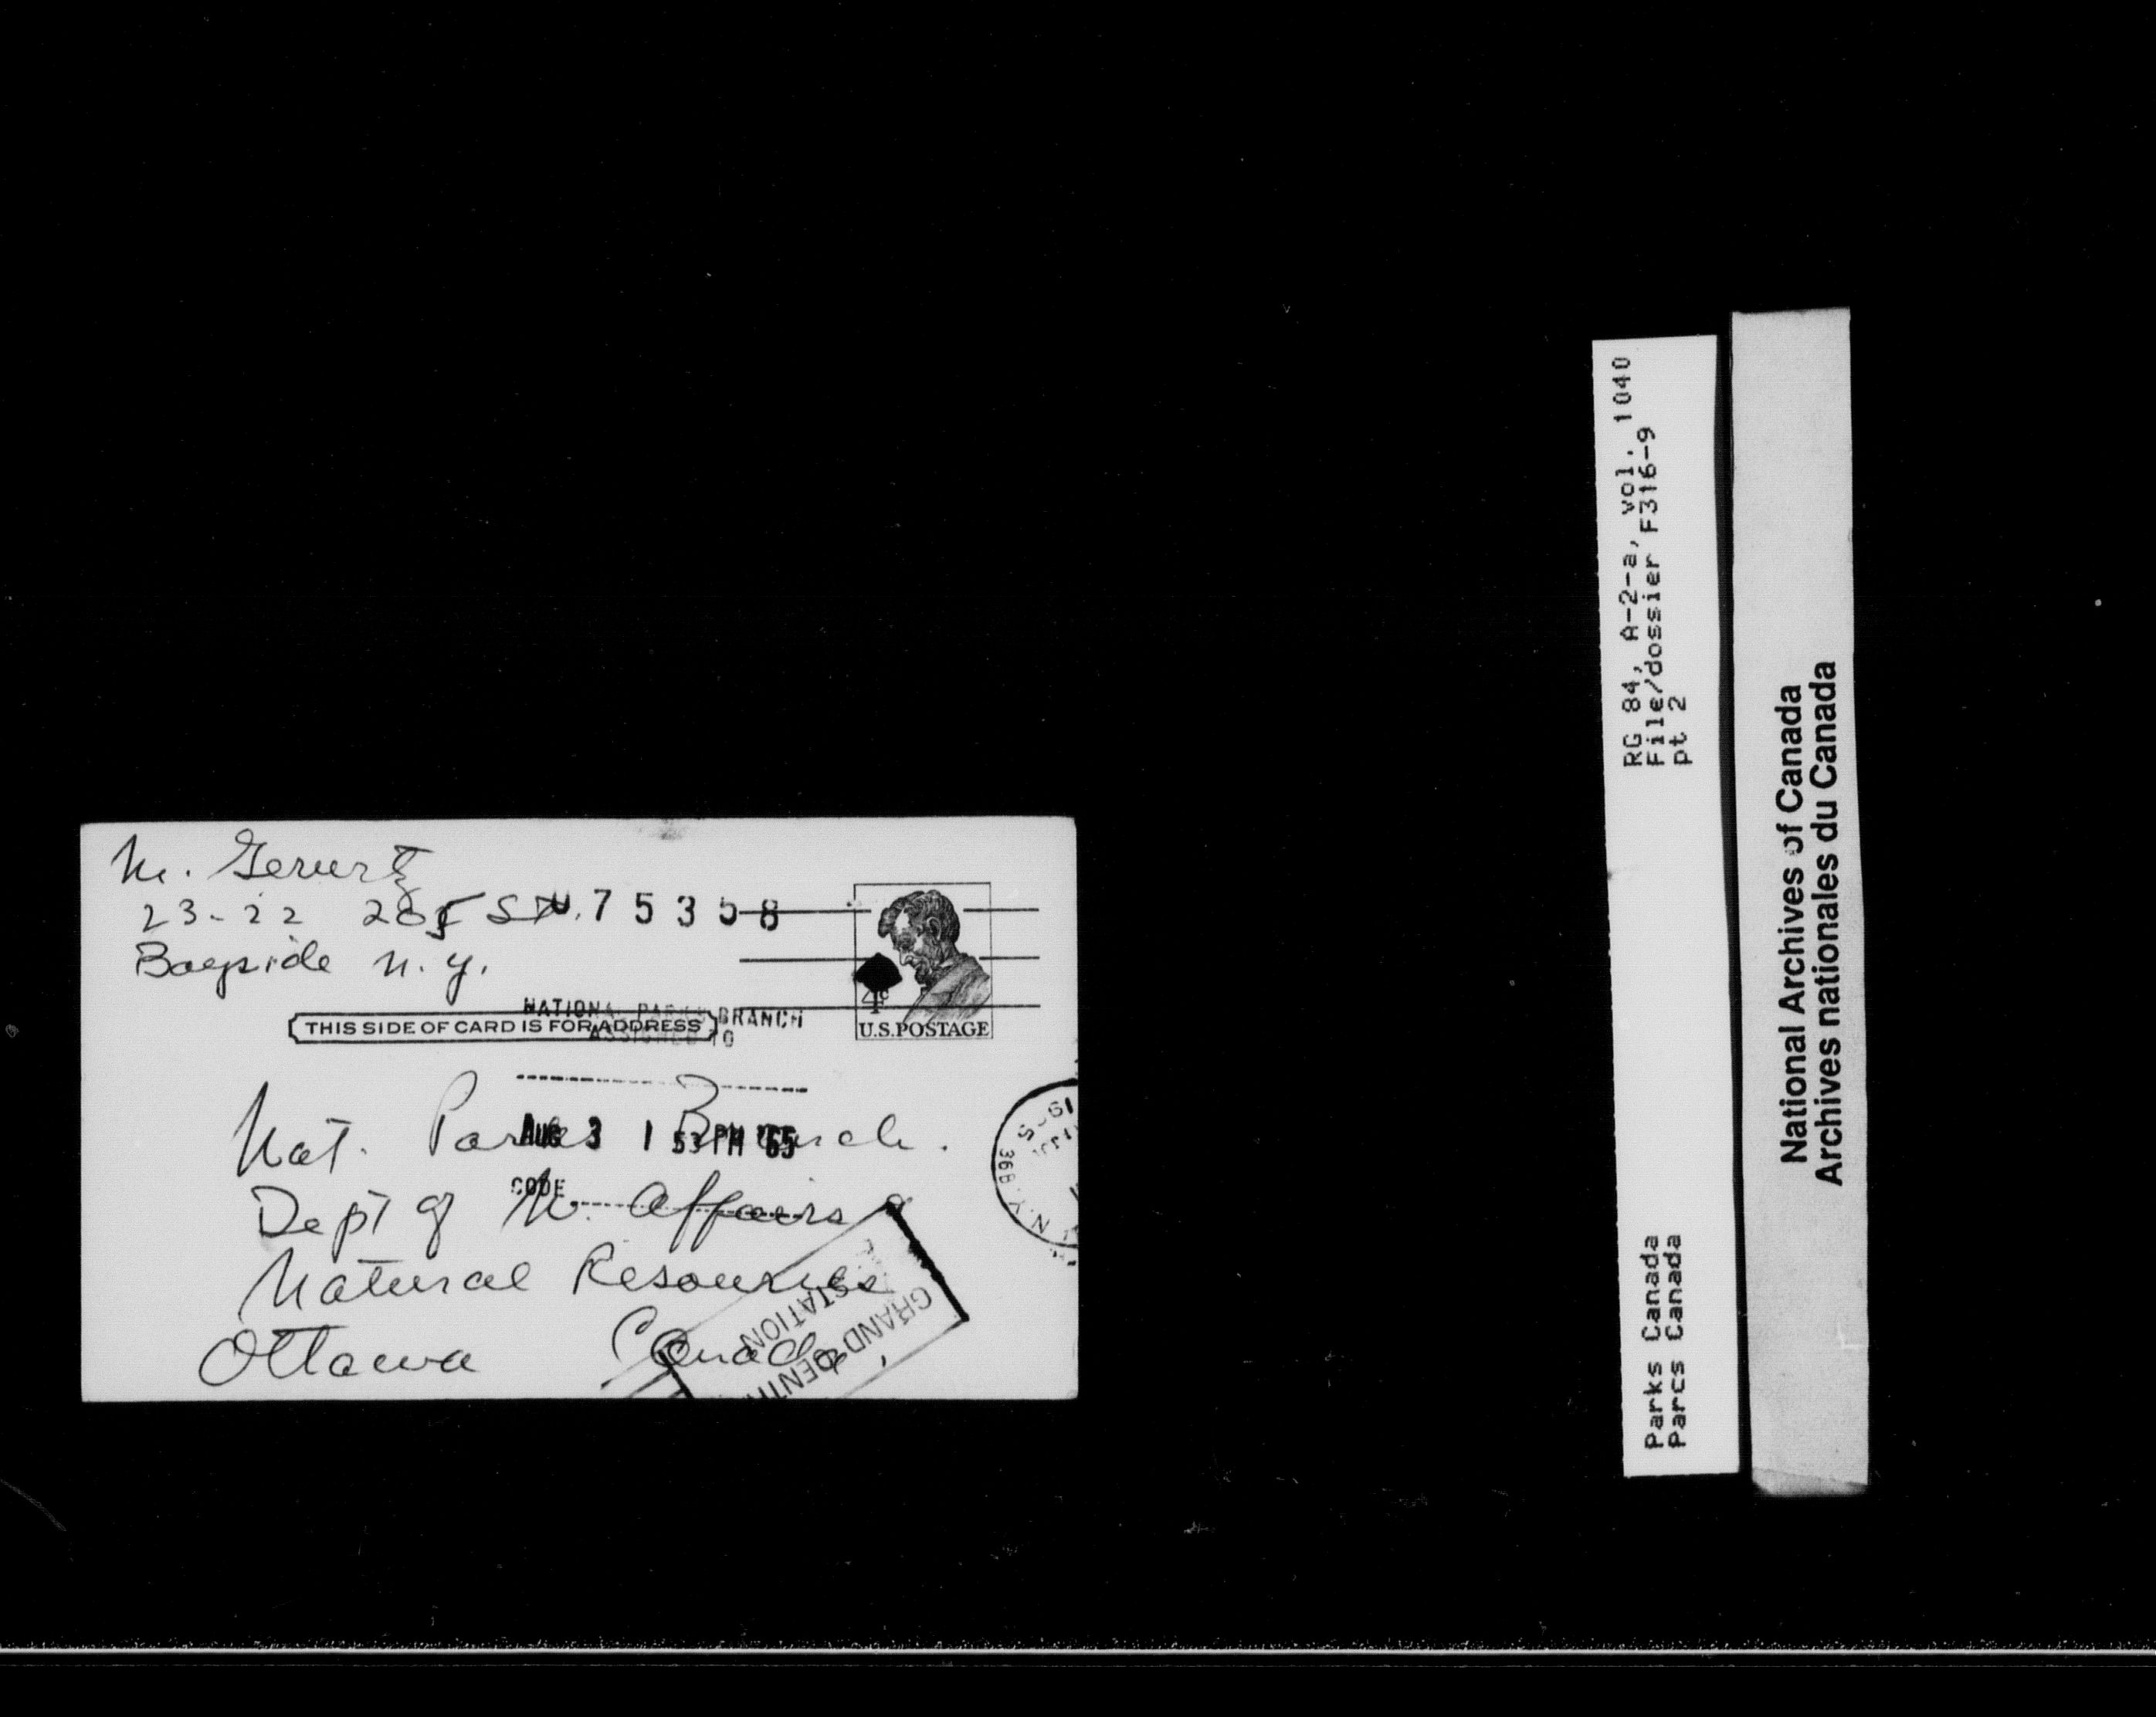 M. Gerwitz
23-22 205 St
Bayside N.Y.
75358
4¢
U.S. POSTAGE
NATIONAL PARKS BRANCH
ASSIGNED TO
THIS SIDE OF CARD IS FOR ADDRESS
Nat. Parks Branch.
AUG 3 1 53 PM '65
Dept of N. Affairs &
CODE
Natural Resources
Ottawa Canada
GRAND
STATION
N.Y.
RG 84, A-2-a, vol. 1040
File/dossier F316-9
pt 2
Parks Canada
Parcs Canada
National Archives of Canada
Archives nationales du Canada